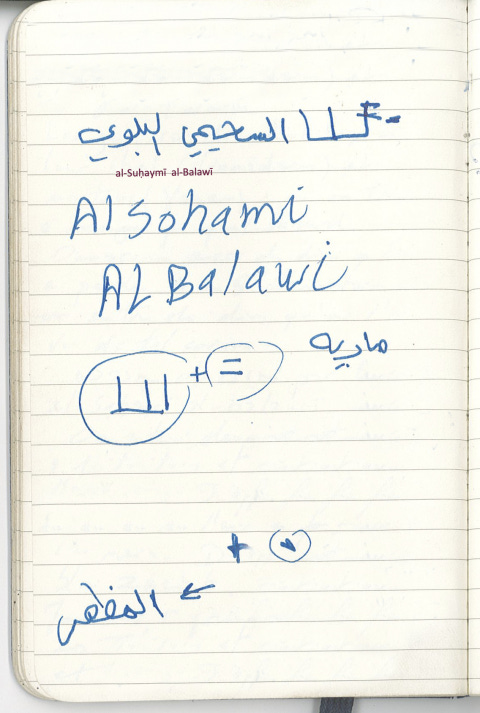 السحيمي البلوي
al-Suḥaymī al-Balawī
Alsohami
ALBalawi
+ =
ماديه
+